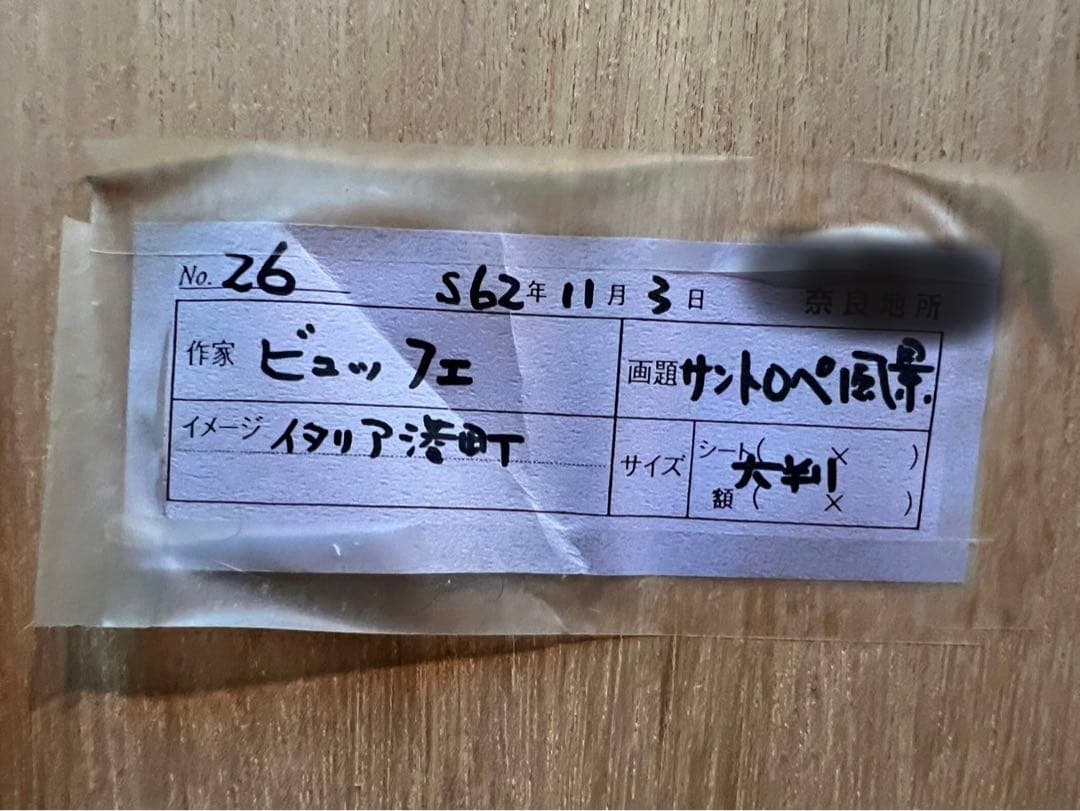 No. 26 S62年 11月 3日 奈良地所
作家 ビュッフェ 画題 サントロペ風景
イメージ イタリア港町
サイズ シート( × )
大判
額 ( × )